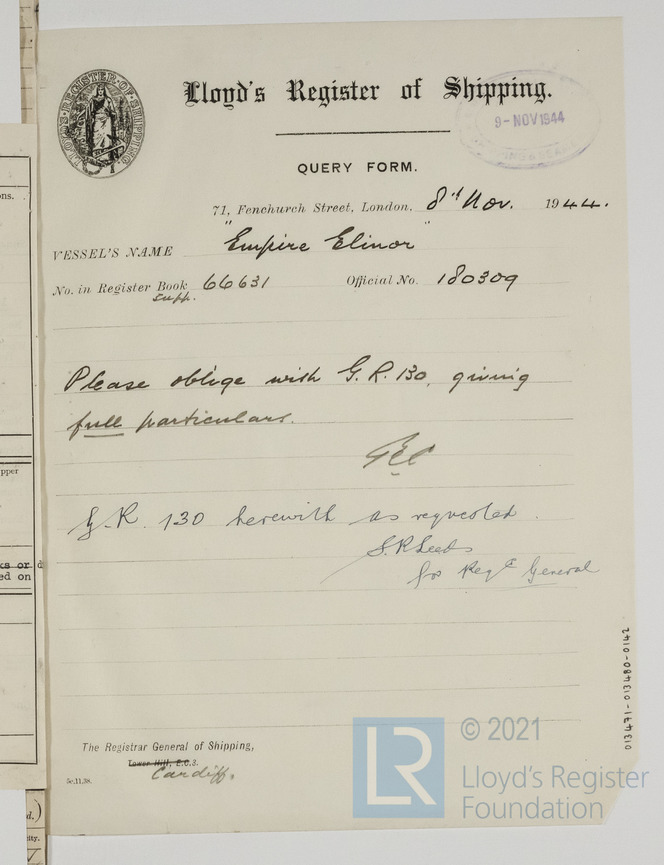 LLOYD'S REGISTER OF SHIPPING
Lloyd's Register of Shipping.
9-NOV1944
QUERY FORM.
71, Fenchurch Street, London, 8th Nov. 1944.
VESSEL'S NAME "Empire Elinor"
No. in Register Book 66631 Official No. 180309
supp.
Please oblige with G.R. 130, giving
full particulars.
G.R. 130 herewith as requested.
S.R. Leeds
for Regr General
The Registrar General of Shipping,
Tower Hill, E.C.3.
Cardiff.
5c.11.38.
013471-013480-0142
© 2021
LR Lloyd's Register
Foundation
ns.
pper
ks or d
ed on
d.)
ity.